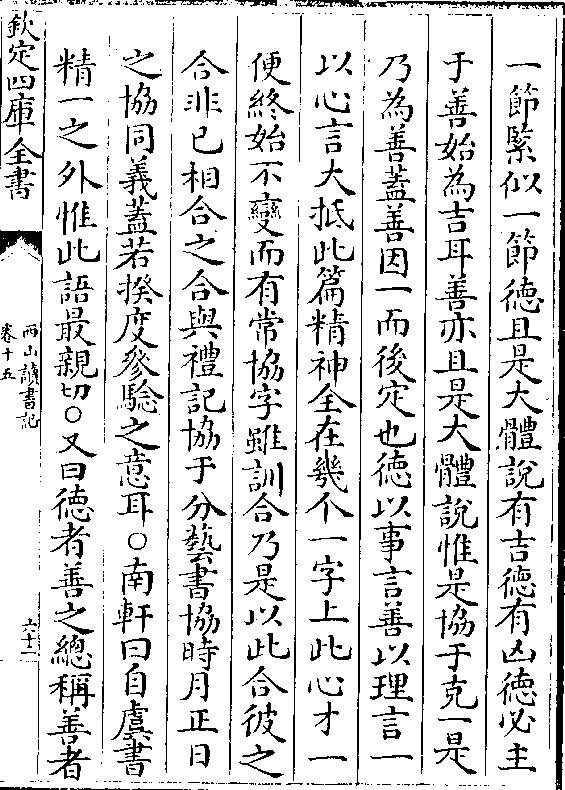 一節緊似一節徳且是大體說有吉徳有凶徳必主
于善始為吉耳善亦且是大體說惟是協于克一是
乃為善蓋善因一而後定也徳以事言善以理言一
以心言大抵此篇精神全在幾个一字上此心才一
便終始不變而有常協字雖訓合乃是以此合彼之
合非已相合之合與禮記協于分藝書協時月正日
之協同義蓋若揆度參驗之意耳○南軒曰自虞書
精一之外惟此語最親切○又曰徳者善之總稱善者
欽定四庫全書
西山讀書記
卷十五
六十二